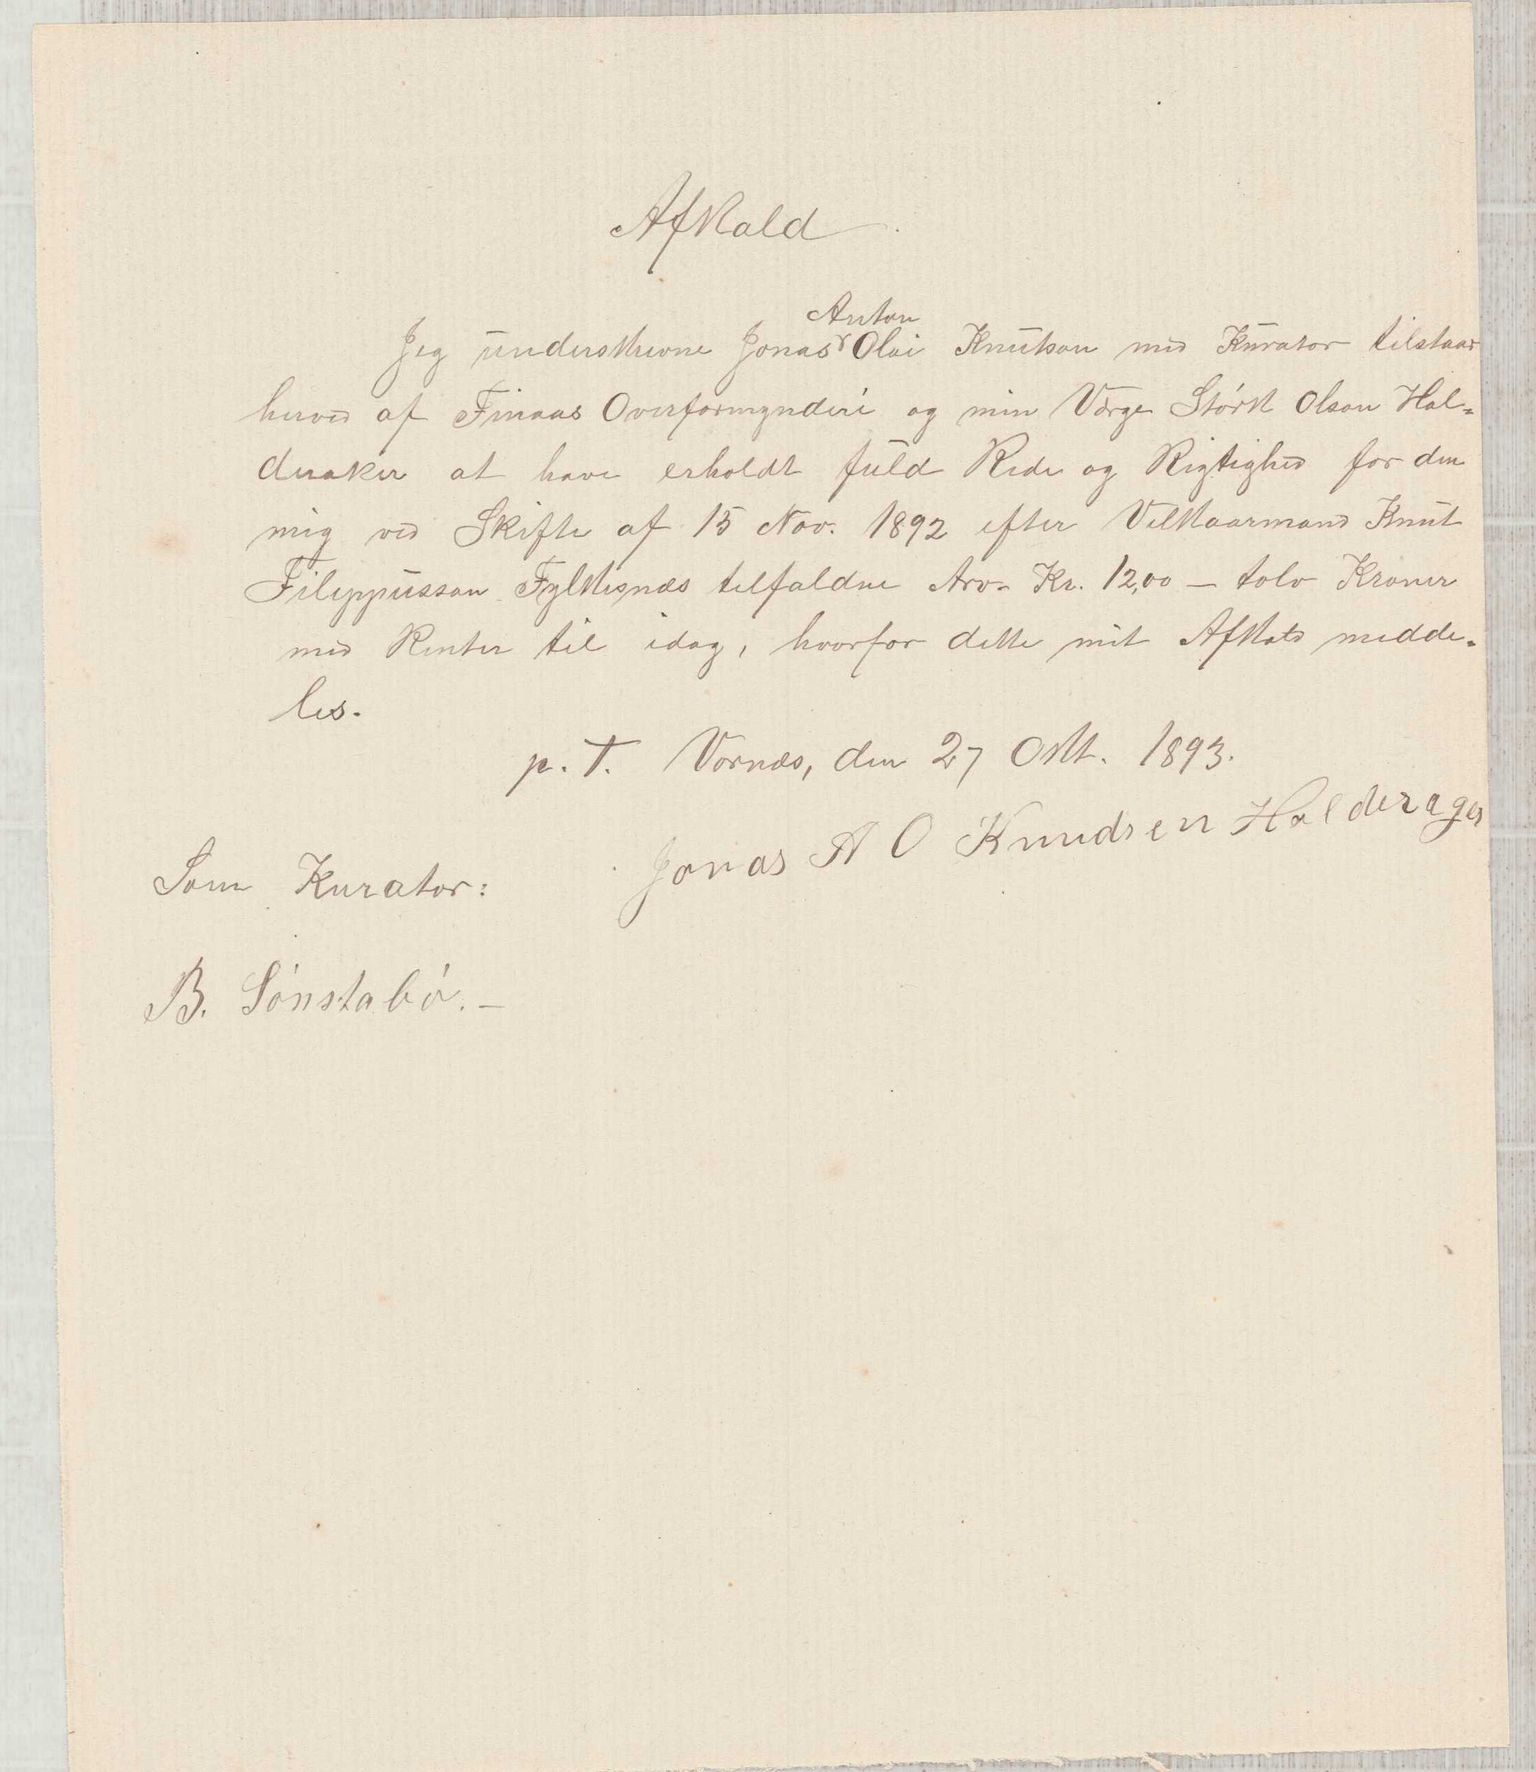 Afkald
Anton
Jeg underskrevne Jonas Olai Knutson med Kurator tilstaar
herved af Finaas Overformynderi og min Værge Størk Olson Hal-
deraker at have erholdt fuld Rede og Rigtighed for den
mig ved Skifte af 15 Nov. 1892 efter Velkaarmand Knut
Filippusson Fylkesnæs tilfaldne Arv - Kr. 12,00 - tolv Kroner
med Renter til idag, hvorfor dette mit Afkald medde-
les.
p. T. Vornæs, den 27 Okt. 1893.
Jonas A O Knudsen Halderager
Som Kurator:
B. Sønstabø. -